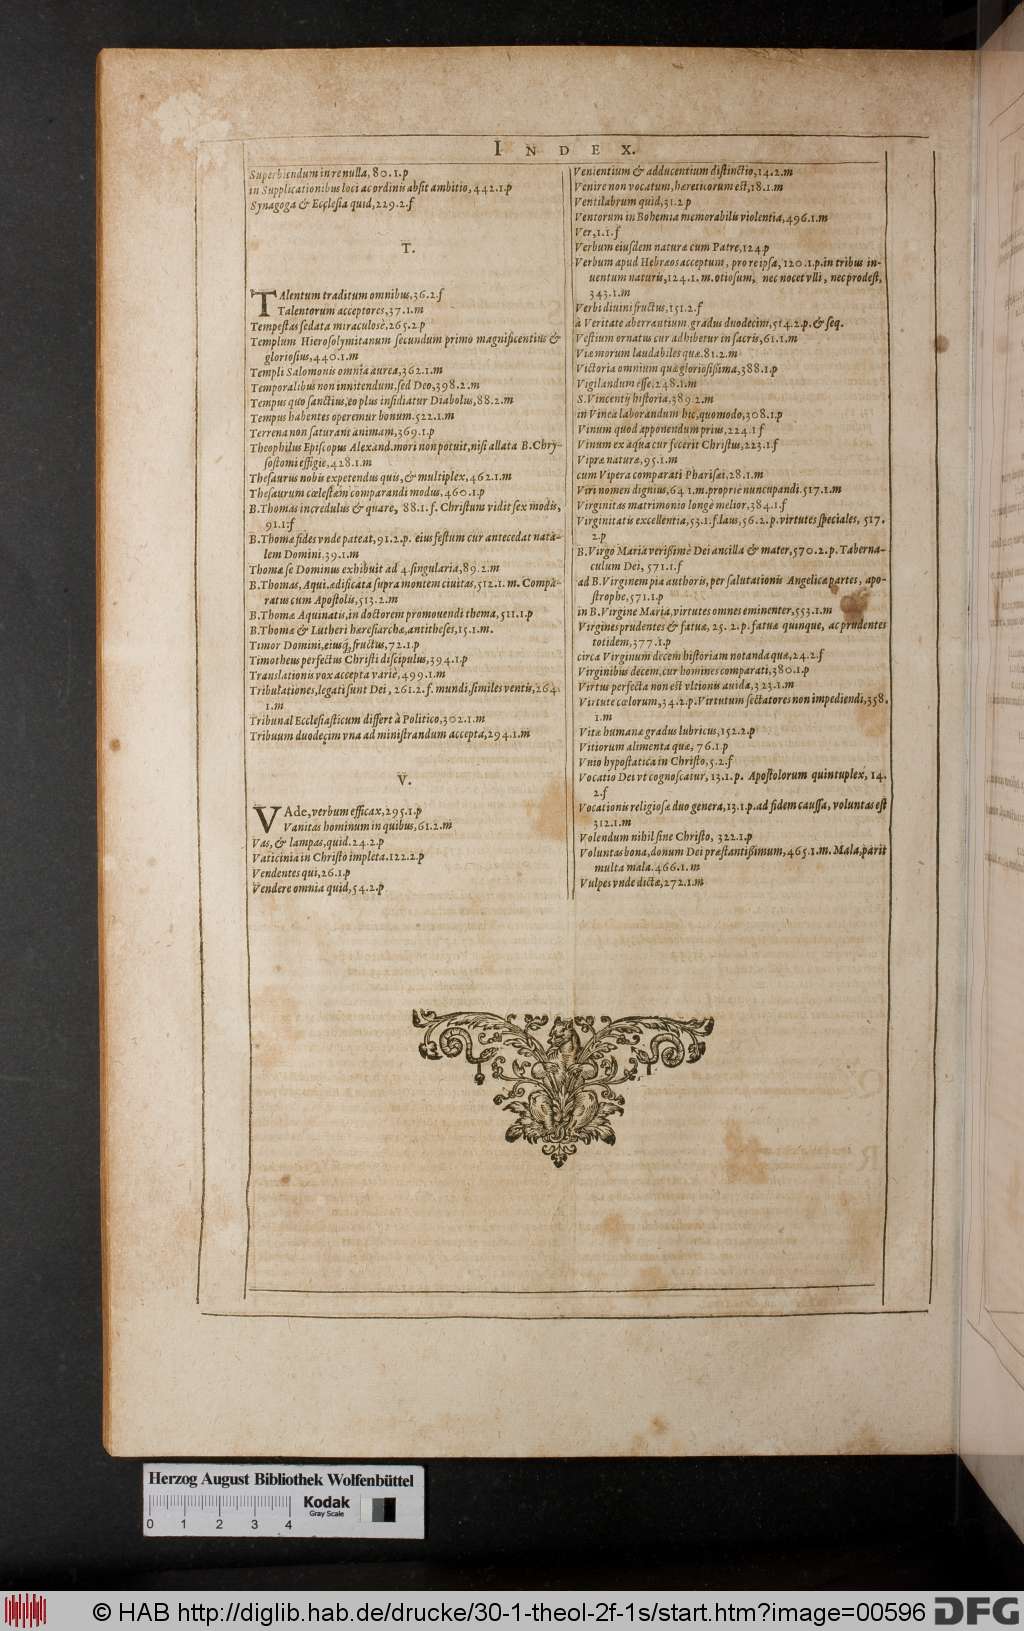 INDEX.
Superbiendum in re nulla, 80.1.p
in Supplicationibus loci ac ordinis absit ambitio, 442.1.p
Synagoga & Ecclesia quid, 229.2.f
T.
TAlentum traditum omnibus, 36.2.f
Talentorum acceptores, 37.1.m
Tempestas sedata miraculosè, 265.2.p
Templum Hierosolymitanum secundum primo magnificentius &
gloriosius, 440.1.m
Templi Salomonis omnia aurea, 362.1.m
Temporalibus non innitendum, sed Deo, 398.2.m
Tempus quo sanctius, eo plus insidiatur Diabolus, 88.2.m
Tempus habentes operemur bonum. 522.1.m
Terrena non saturant animam, 369.1.p
Theophilus Episcopus Alexand. mori non potuit, nisi allata B. Chry-
sostomi effigie, 428.1.m
Thesaurus nobis expetendus quis, & multiplex, 462.1.m
Thesaurum cœlestem comparandi modus, 460.1.p
B. Thomas incredulus & quare, 88.1.f. Christum vidit sex modis,
91.1.f
B. Thomæ fides vnde pateat, 91.2.p. eius festum cur antecedat nata-
lem Domini. 39.1.m
Thomæ se Dominus exhibuit ad 4. singularia, 89.2.m
B. Thomas, Aqui. ædificata supra montem ciuitas, 512.1.m. Compa-
ratus cum Apostolis, 513.2.m
B. Thomæ Aquinatis, in doctorem promouendi thema, 511.1.p
B. Thomæ & Lutheri hæresiarchæ, antitheses, 15.1.m.
Timor Domini, eiusq; fructus, 72.1.p
Timotheus perfectus Christi discipulus, 394.1.p
Translationis vox accepta variè, 499.1.m
Tribulationes, legati sunt Dei, 261.2.f. mundi, similes ventis, 264.
1.m
Tribunal Ecclesiasticum differt à Politico, 302.1.m
Tribuum duodecim vna ad ministrandum accepta, 294.1.m
V.
VAde, verbum efficax, 295.1.p
Vanitas hominum in quibus, 61.2.m
Vas, & lampas, quid. 24.2.p
Vaticinia in Christo impleta. 122.2.p
Vendentes qui, 26.1.p
Vendere omnia quid, 54.2.p
Venientium & adducentium distinctio, 14.2.m
Venire non vocatum, hæreticorum est, 18.1.m
Ventilabrum quid, 31.2.p
Ventorum in Bohemia memorabilis violentia, 496.1.m
Ver, 1.1.f
Verbum eiusdem naturæ cum Patre, 124.p
Verbum apud Hebræos acceptum, pro re ipsa, 120.1.p. in tribus in-
uentum naturis, 124.1.m. otiosum, nec nocet vlli, nec prodest,
343.1.m
Verbi diuini fructus, 151.2.f
à Veritate aberrantium gradus duodecim, 514.2.p. & seq.
Vestium ornatus cur adhibetur in sacris, 61.1.m
Viæ morum laudabiles quæ. 81.2.m
Victoria omnium quæ gloriosissima, 388.1.p
Vigilandum esse, 248.1.m
S. Vincentij historia, 389.2.m
in Vinea laborandum hic, quomodo, 308.1.p
Vinum quod apponendum prius, 224.1.f
Vinum ex aqua cur fecerit Christus, 223.1.f
Viprænaturæ, 95.1.m
cum Vipera comparati Pharisæi, 28.1.m
Viri nomen dignius, 641.m. propriè nuncupandi. 517.1.m
Virginitas matrimonio longè melior, 384.1.f
Virginitatis excellentia, 53.1.f. laus, 56.2.p. virtutes speciales, 517.
2.p
B. Virgo Maria verissimè Dei ancilla & mater, 570.2.p. Taberna-
culum Dei, 571.1.f
ad B. Virginem pia authoris, per salutationis Angelicæ partes, apo-
strophe, 571.1.p
in B. Virgine Maria, virtutes omnes eminenter, 553.1.m
Virgines prudentes & fatuæ, 25.2.p. fatuæ quinque, ac prudentes
totidem, 377.1.p
circa Virginum decem historiam notanda quæ, 24.2.f
Virginibus decem, cur homines comparati, 380.1.p
Virtus perfecta non est vltionis auida, 323.1.m
Virtute cœlorum, 34.2.p. Virtutum sectatores non impediendi, 358.
1.m
Vitæ humanæ gradus lubricus, 152.2.p
Vitiorum alimenta quæ, 76.1.p
Vnio hypostatica in Christo, 5.2.f
Vocatio Dei vt cognoscatur, 13.1.p. Apostolorum quintuplex, 14.
2.f
Vocationis religiosæ duo genera, 13.1.p. ad fidem caussa, voluntas est
312.1.m
Volendum nihil sine Christo, 322.1.p
Voluntas bona, donum Dei præstantissimum, 465.1.m. Mala, parit
multa mala. 466.1.m
Vulpes vnde dictæ, 272.1.m
Herzog August Bibliothek Wolfenbüttel
Kodak
Gray Scale
0 1 2 3 4
© HAB http://diglib.hab.de/drucke/30-1-theol-2f-1s/start.htm?image=00596 DFG